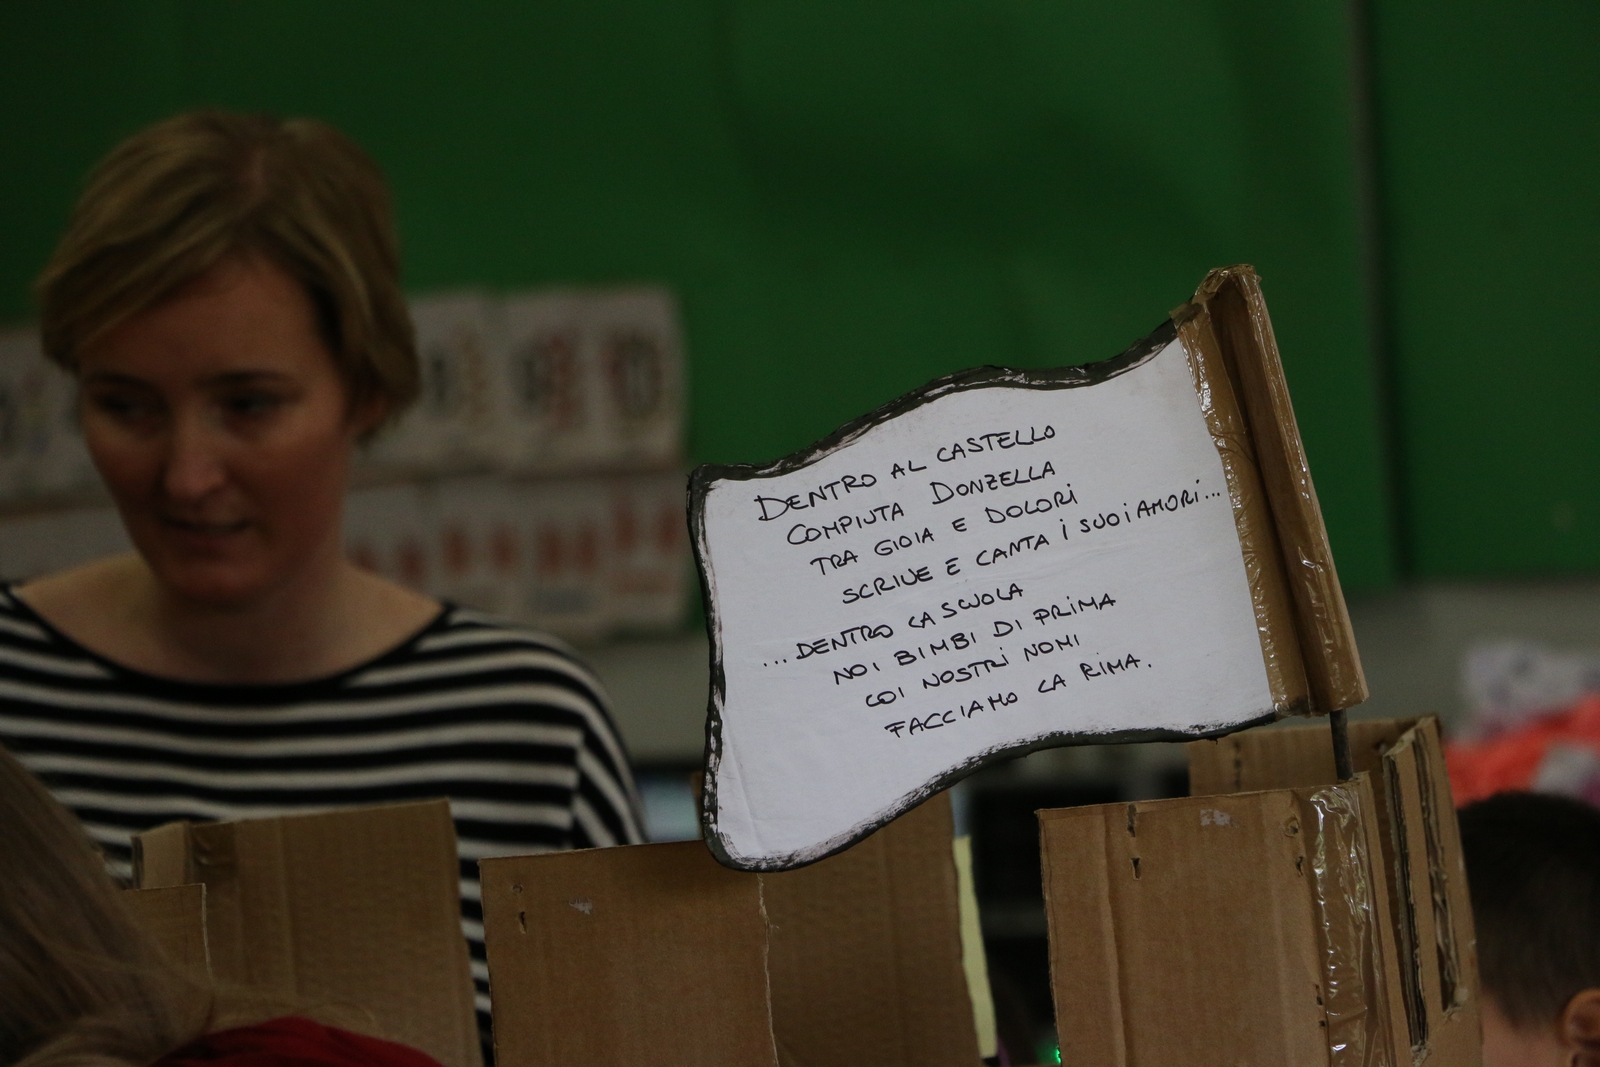 DENTRO AL CASTELLO
COMPIUTA DONZELLA
TRA GIOIA E DOLORI
SCRIVE E CANTA I SUOI AMORI...
...DENTRO LA SCUOLA
NOI BIMBI DI PRIMA
COI NOSTRI NOMI
FACCIAMO LA RIMA.